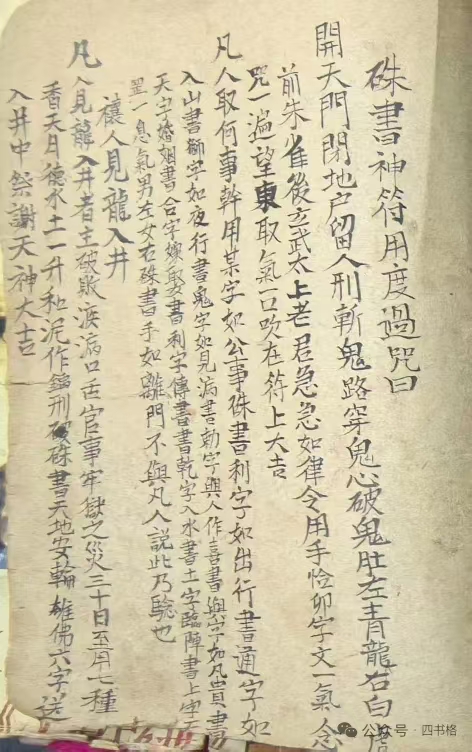 硃書神符用度過咒曰
開天門閉地户留人刑斬鬼路穿鬼心破鬼肚左青龍右白
前朱雀後玄武太上老君急急如律令用手恰卯字文一氣念
咒一遍望東取氣一口吹在符上大吉
凡人取何事幹用某字如公事硃書利字如出行書通字如
入山書獅字如夜行書鬼字如見病書勅字與人作喜書與字如凡買書
天字婚姻書合字嫁娶書利字傳書書乾字入水書土字臨陣書上字
罡一息氣男左女右硃書手如離門不與凡人説此乃驗也
禳人見龍入井
凡人見龍入井者主破敗淚病口舌官事牢獄之災三十日至用七種
香天月德水土一升和泥作龍刑破硃書天地安輪雄佛六字送
入井中祭謝天神大吉
公众号·四书格